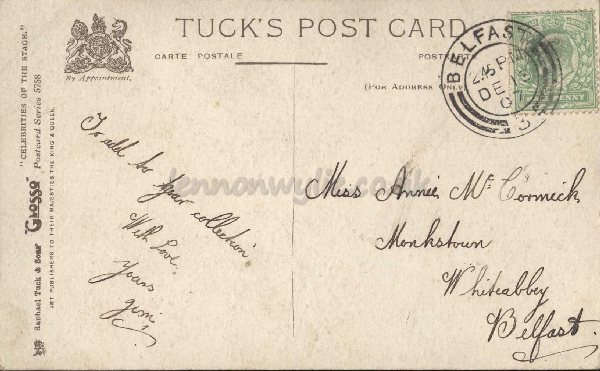 TUCK'S POST CARD
CARTE POSTALE
POSTKARTE
(FOR ADDRESS ONLY)
By Appointment.
BELFAST
2.45 PM
DE
07
3
PENNY
"CELEBRITIES OF THE STAGE."
"GLOSSO" Postcard Series 5758
Raphael Tuck & Sons'
ART PUBLISHERS TO THEIR MAJESTIES THE KING & QUEEN.
To add to
your collection
With Love.
Yours
Jim,
Miss Annie McCormick
Monkstown
Whiteabbey
Belfast.
lennonwylie.co.uk